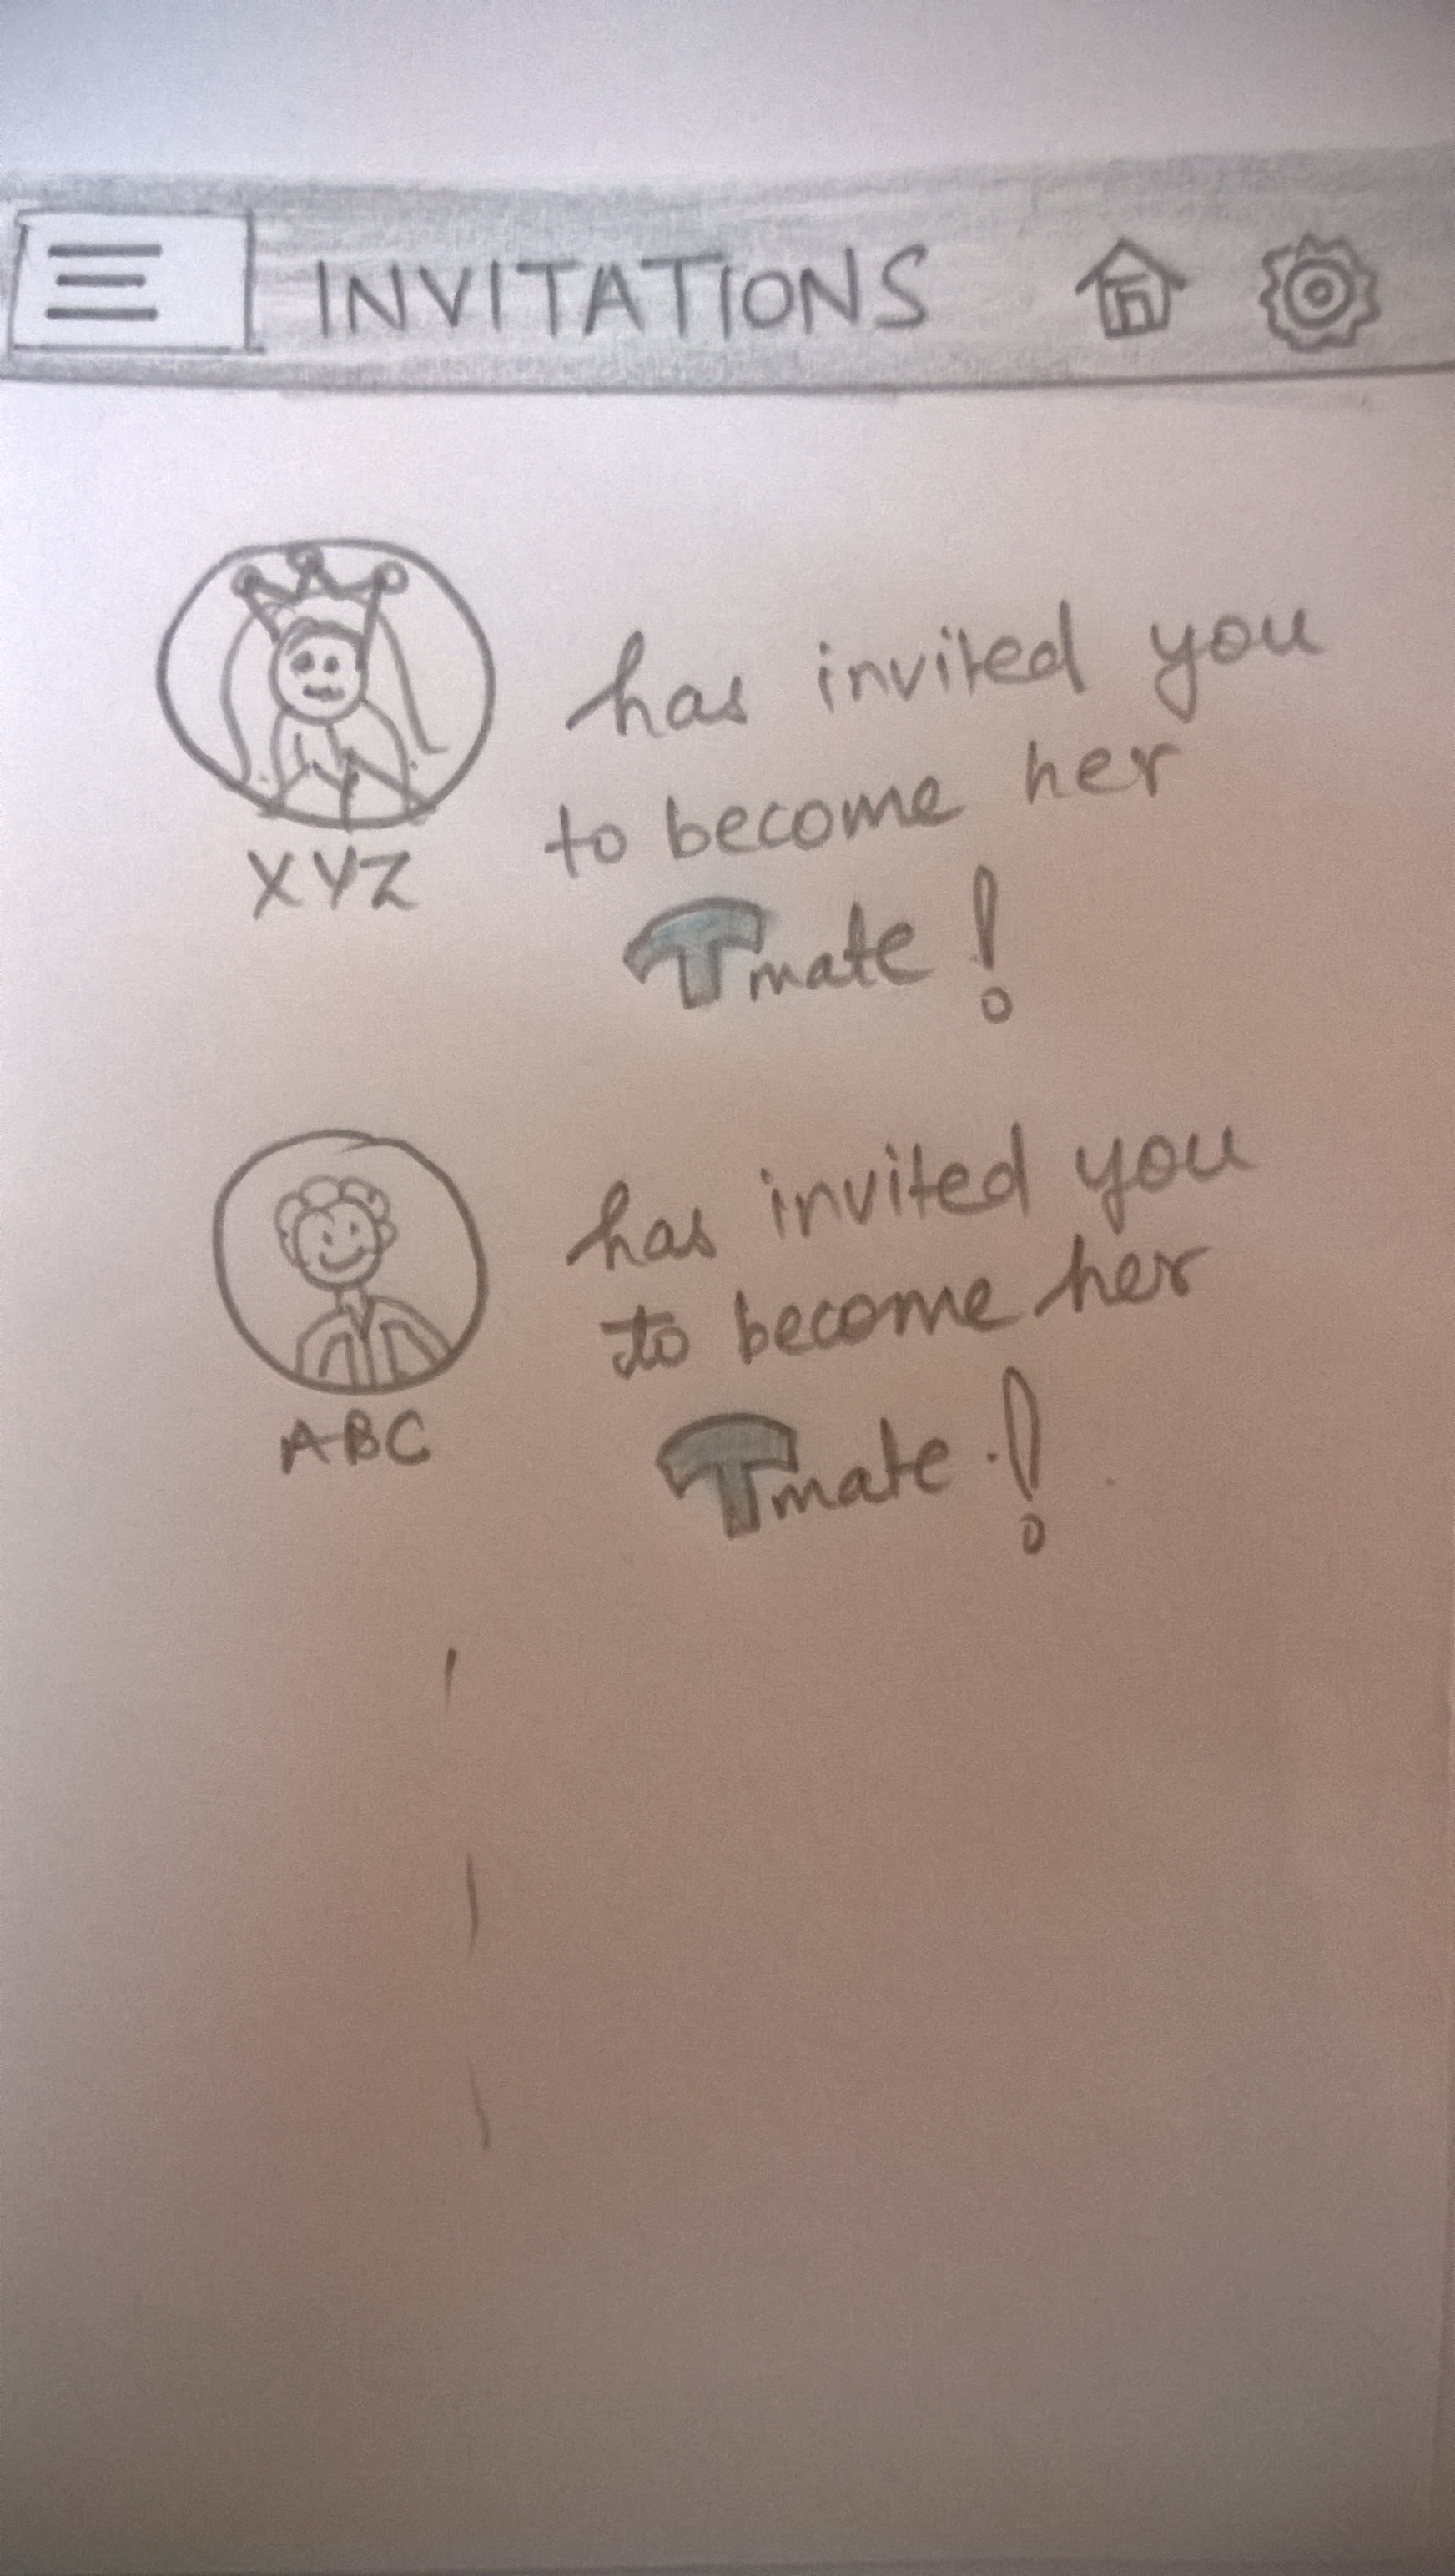 INVITATIONS
has invited you
to become her
Tmate!
XYZ
has invited you
to become her
Tmate!
ABC